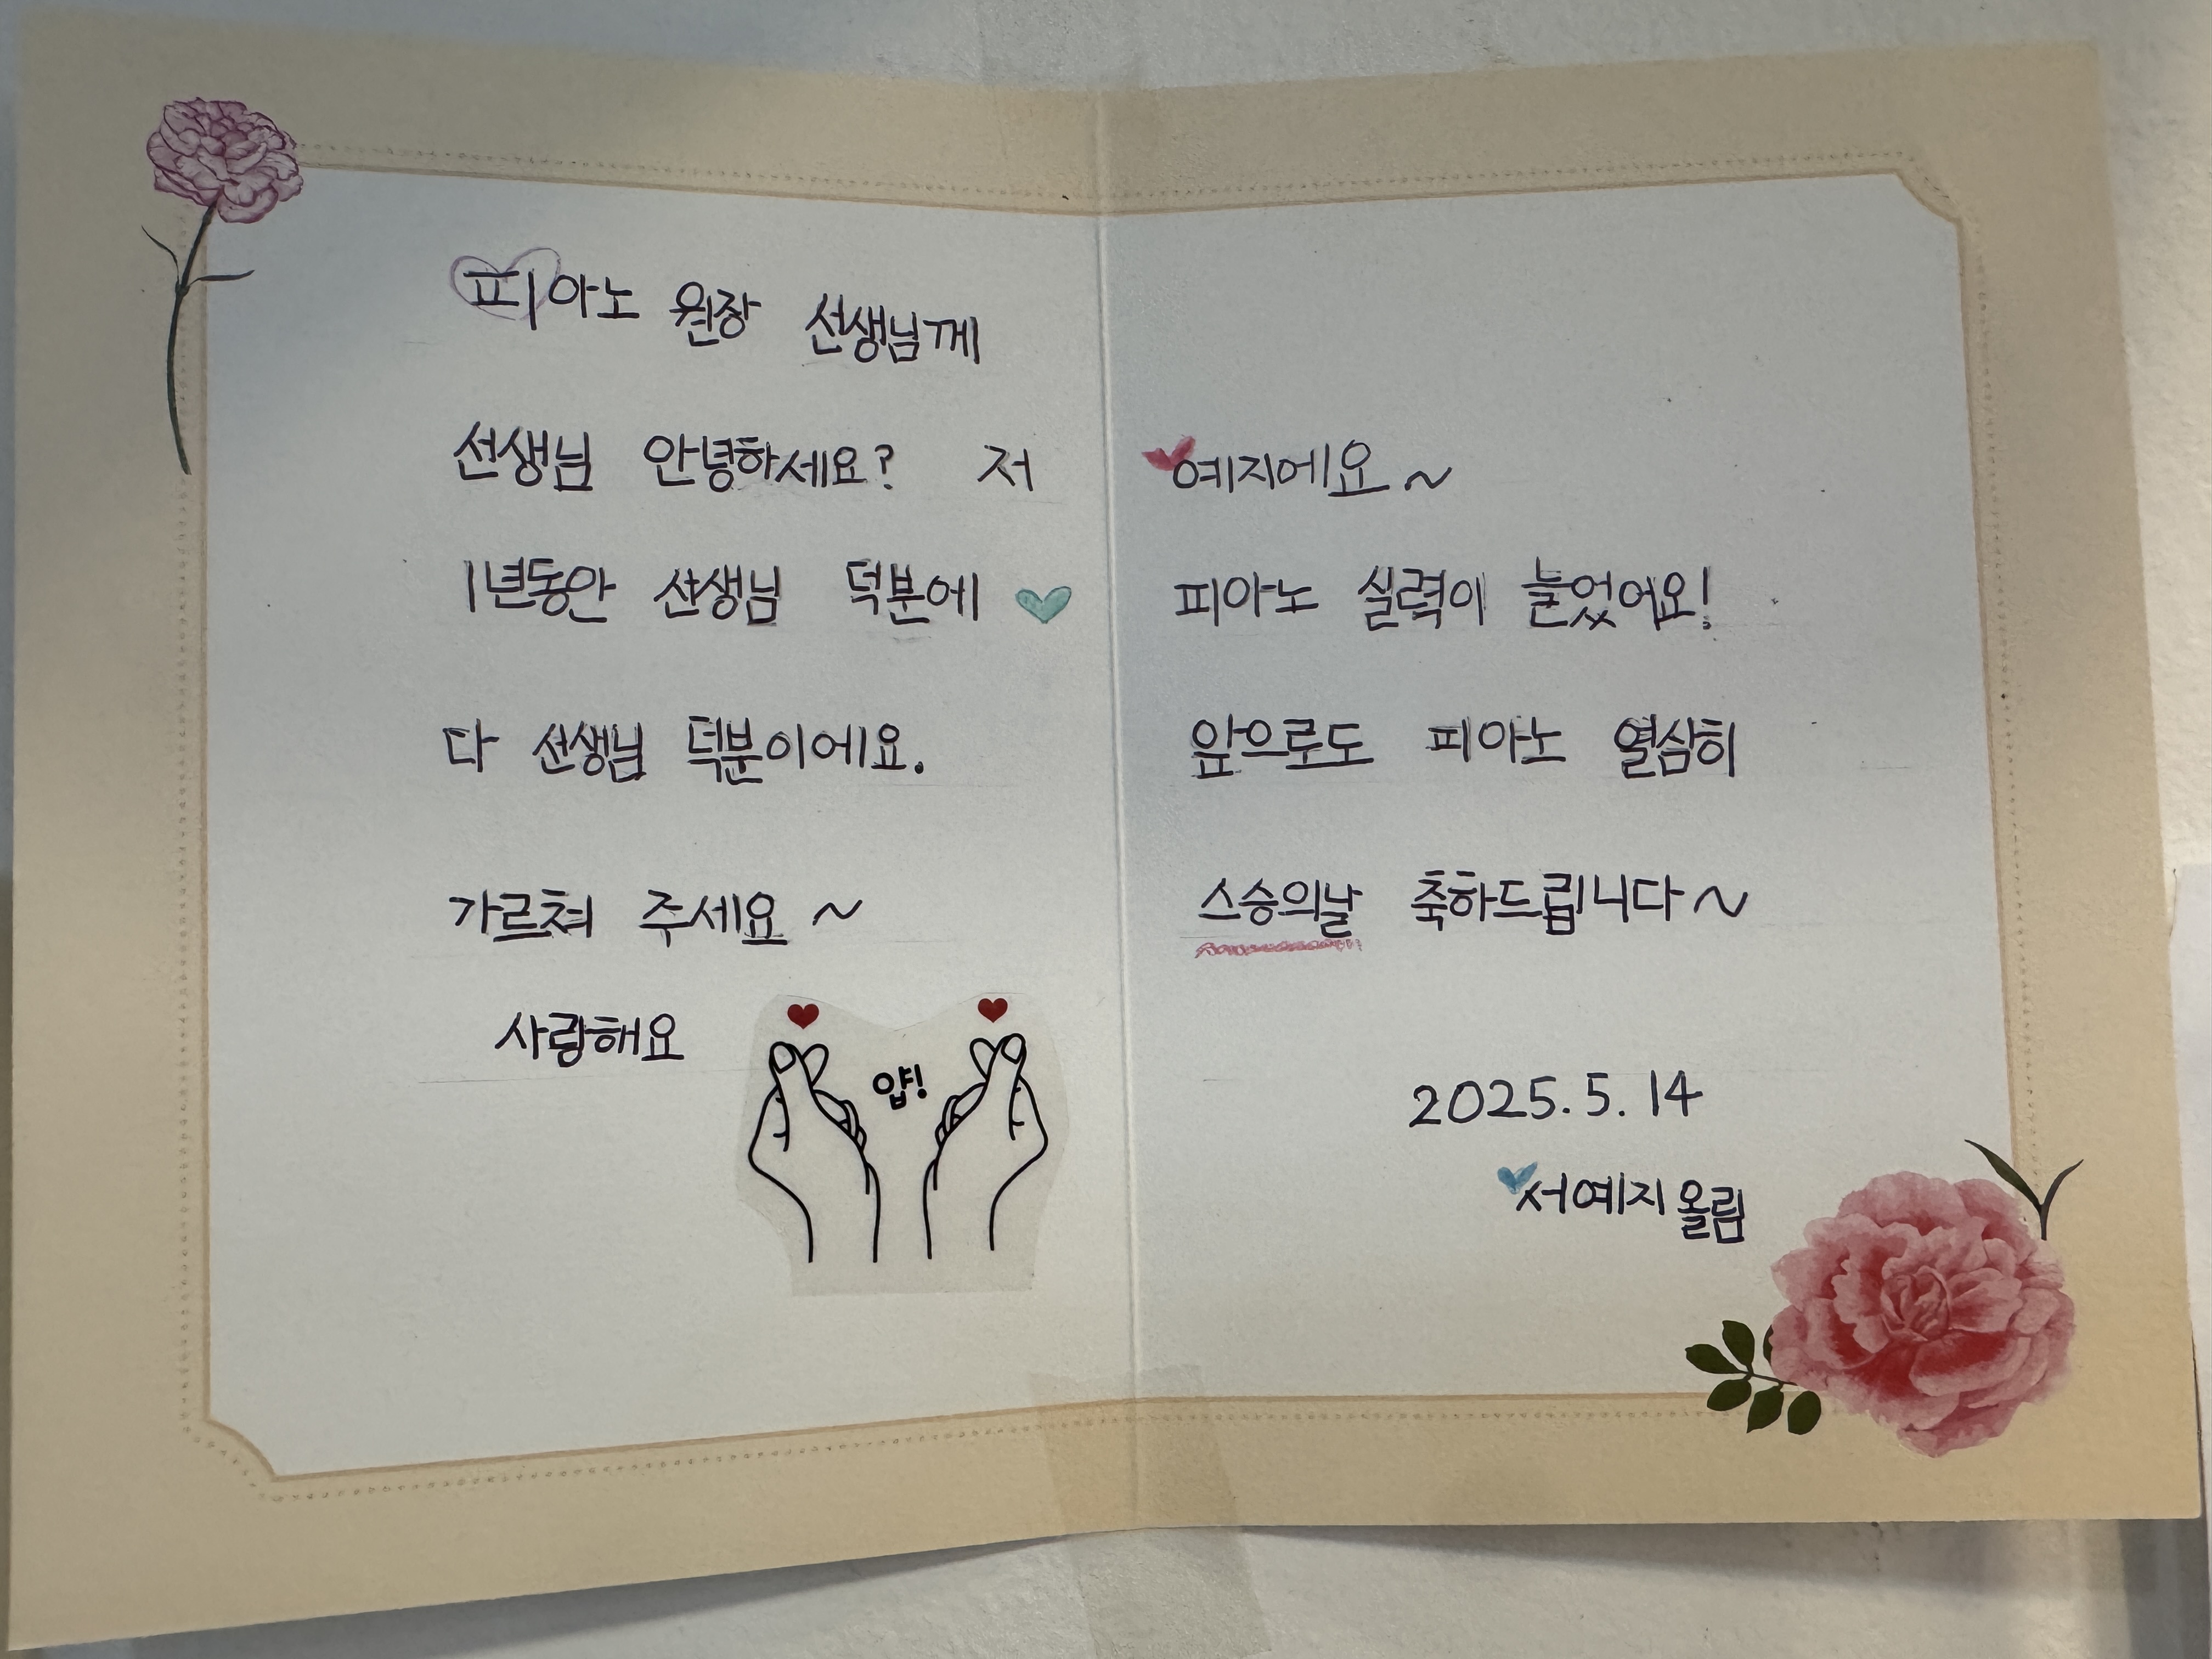 피아노 원장 선생님께
선생님 안녕하세요? 저 예지에요~
1년동안 선생님 덕분에 피아노 실력이 늘었어요!
다 선생님 덕분이에요. 앞으로도 피아노 열심히
가르쳐 주세요~ 스승의날 축하드립니다~
사랑해요
얍!
2025.5.14
서예지 올림